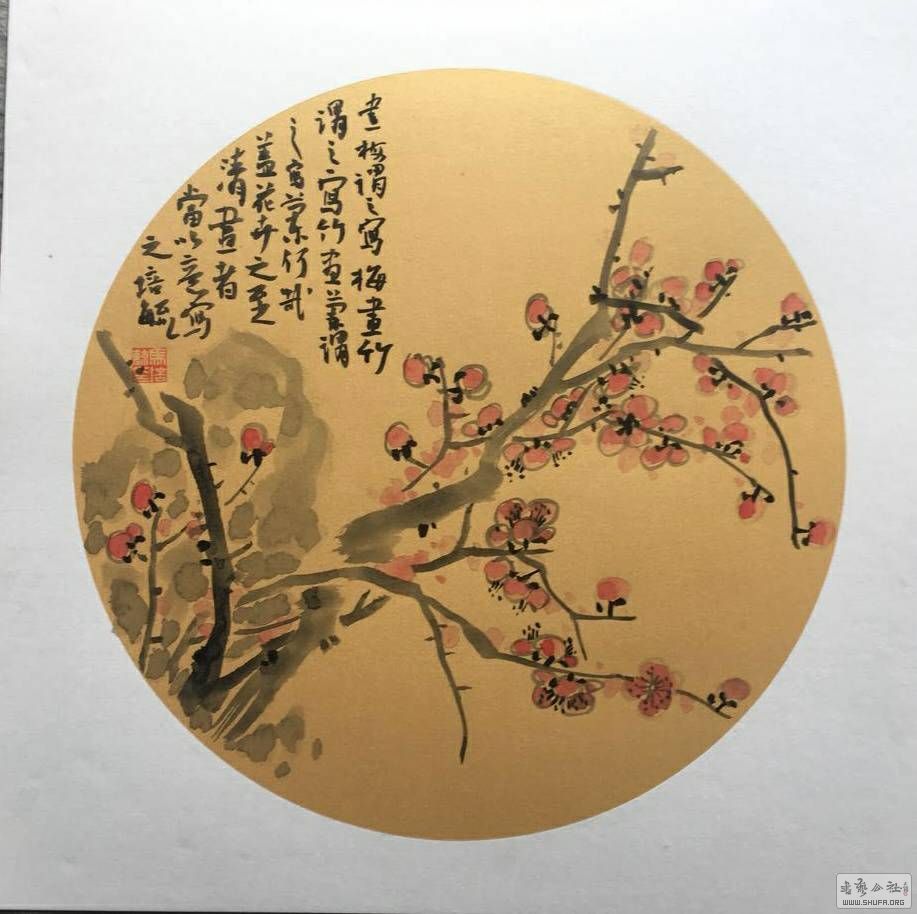 畫梅謂之寫梅畫竹
謂之寫竹畫蘭謂
之寫蘭何哉
蓋花卉之至
清畫者
當以意寫
之培毓
书艺公社
WWW.SHUFA.ORG